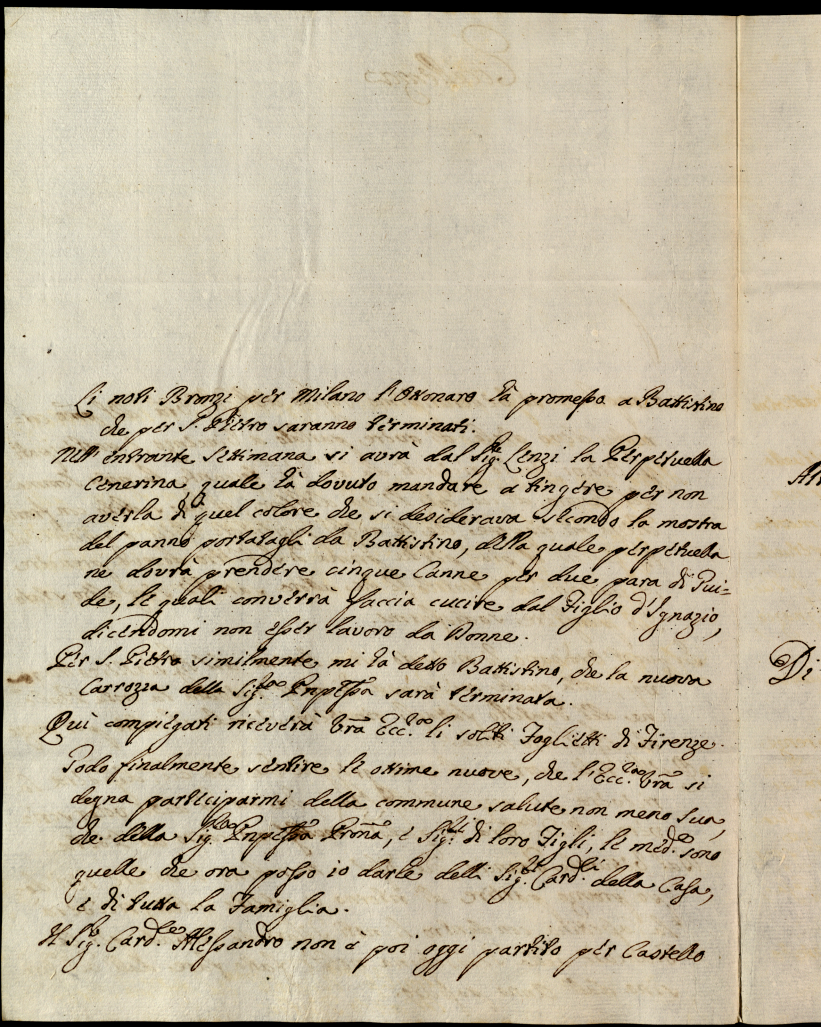 Li noti Bronzi per Milano l'Ottonaro hà promesso a Battistino
che per S. Pietro saranno terminati.
Nell'entrante Settimana si avrà dal Sig.re Lenzi la Perpetuella
Cenerina, quale hà dovuto mandare a tingere per non
averla di quel colore che si desiderava secondo la mostra
del panno portatagli da Battistino, della quale perpetuella
ne dovrà prendere cinque Canne per due para di Gui=
de, le quali converrà faccia cucire dal Figlio d'Ignazio,
dicendomi non esser lavoro da Donne.
Per S. Pietro similmente mi hà detto Battistino, che la nuova
Carrozza della Sig.ra Pnpessa sarà terminata.
Quì compiegati riceverà Vra Ecc.za li soliti Foglietti di Firenze.
Godo finalmente sentire le ottime nuove, che l'Ecc.za Vra si
degna participarmi della commune salute non meno sua,
che della Sig.ra Pnpessa Prona, e Sig.ri di loro Figli, le med.e sono
quelle che ora posso io darle delli Sig.ri Card.li della Casa,
e di tutta la Famiglia.
Il Sig. Card.le Alessandro non è poi oggi partito per Castello
Di